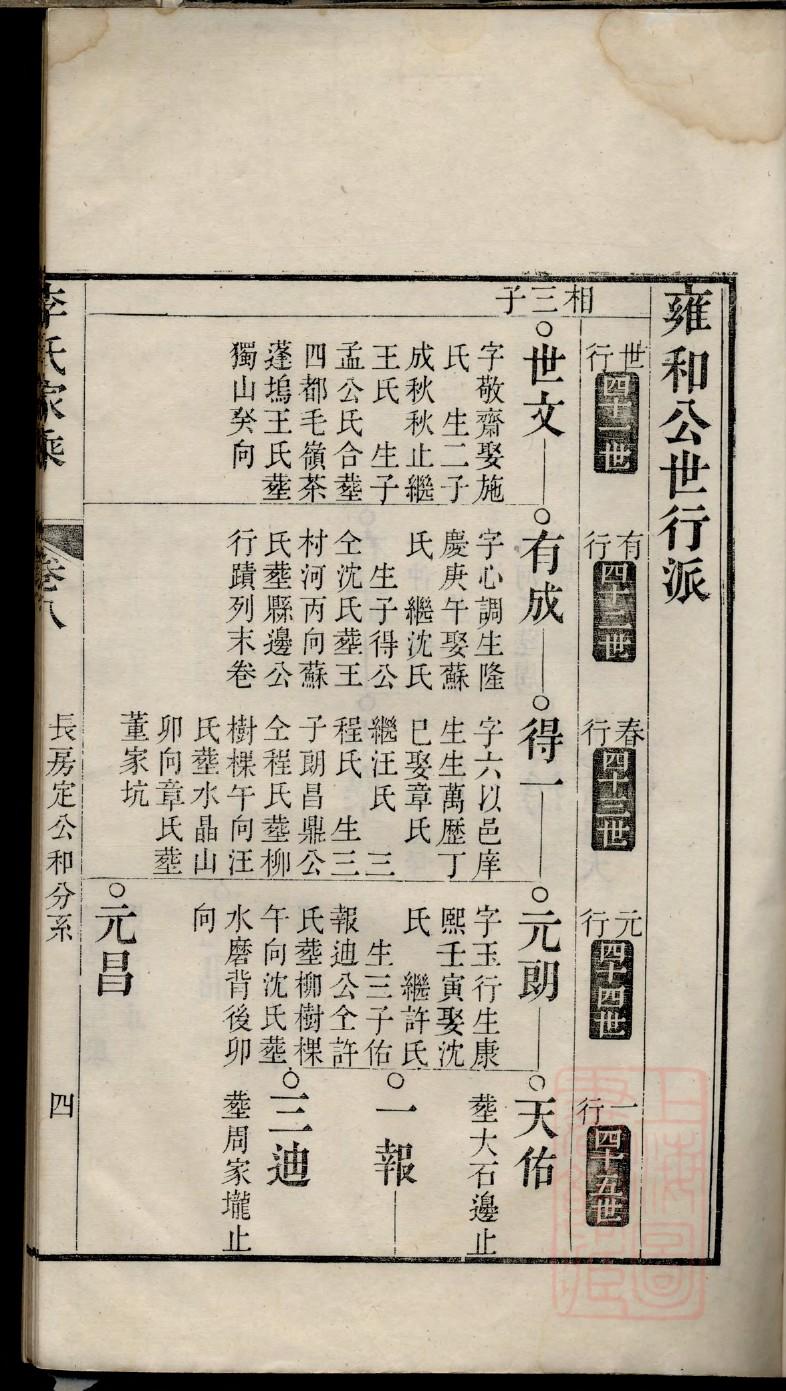 雍和公世行派
世行 四十一世
有行 四十二世
春行 四十三世
元行 四十四世
一行 四十五世
相三子
世文
字敬齋娶施
氏 生二子
成秋秋止繼
王氏 生子
孟公氏合塟
四都毛嶺茶
蓬塢王氏塟
獨山癸向
有成
字心調生隆
慶庚午娶蘇
氏 繼沈氏
生子得公
仝沈氏塟王
村河丙向蘇
氏塟縣邊公
行蹟列末卷
得一
字六以邑庠
生生萬歷丁
巳娶章氏
繼汪氏 三
程氏 生三
子朗昌鼎公
仝程氏塟柳
樹棵午向汪
氏塟水晶山
卯向章氏塟
董家坑
元朗
字玉行生康
熙壬寅娶沈
氏 繼許氏
生三子佑
報迪公仝許
氏塟柳樹棵
午向沈氏塟
水磨背後卯
向
元昌
天佑
塟大石邊止
一報
三迪
塟周家壠止
李氏家乘
卷八
長房定公和分系
四
上海圖